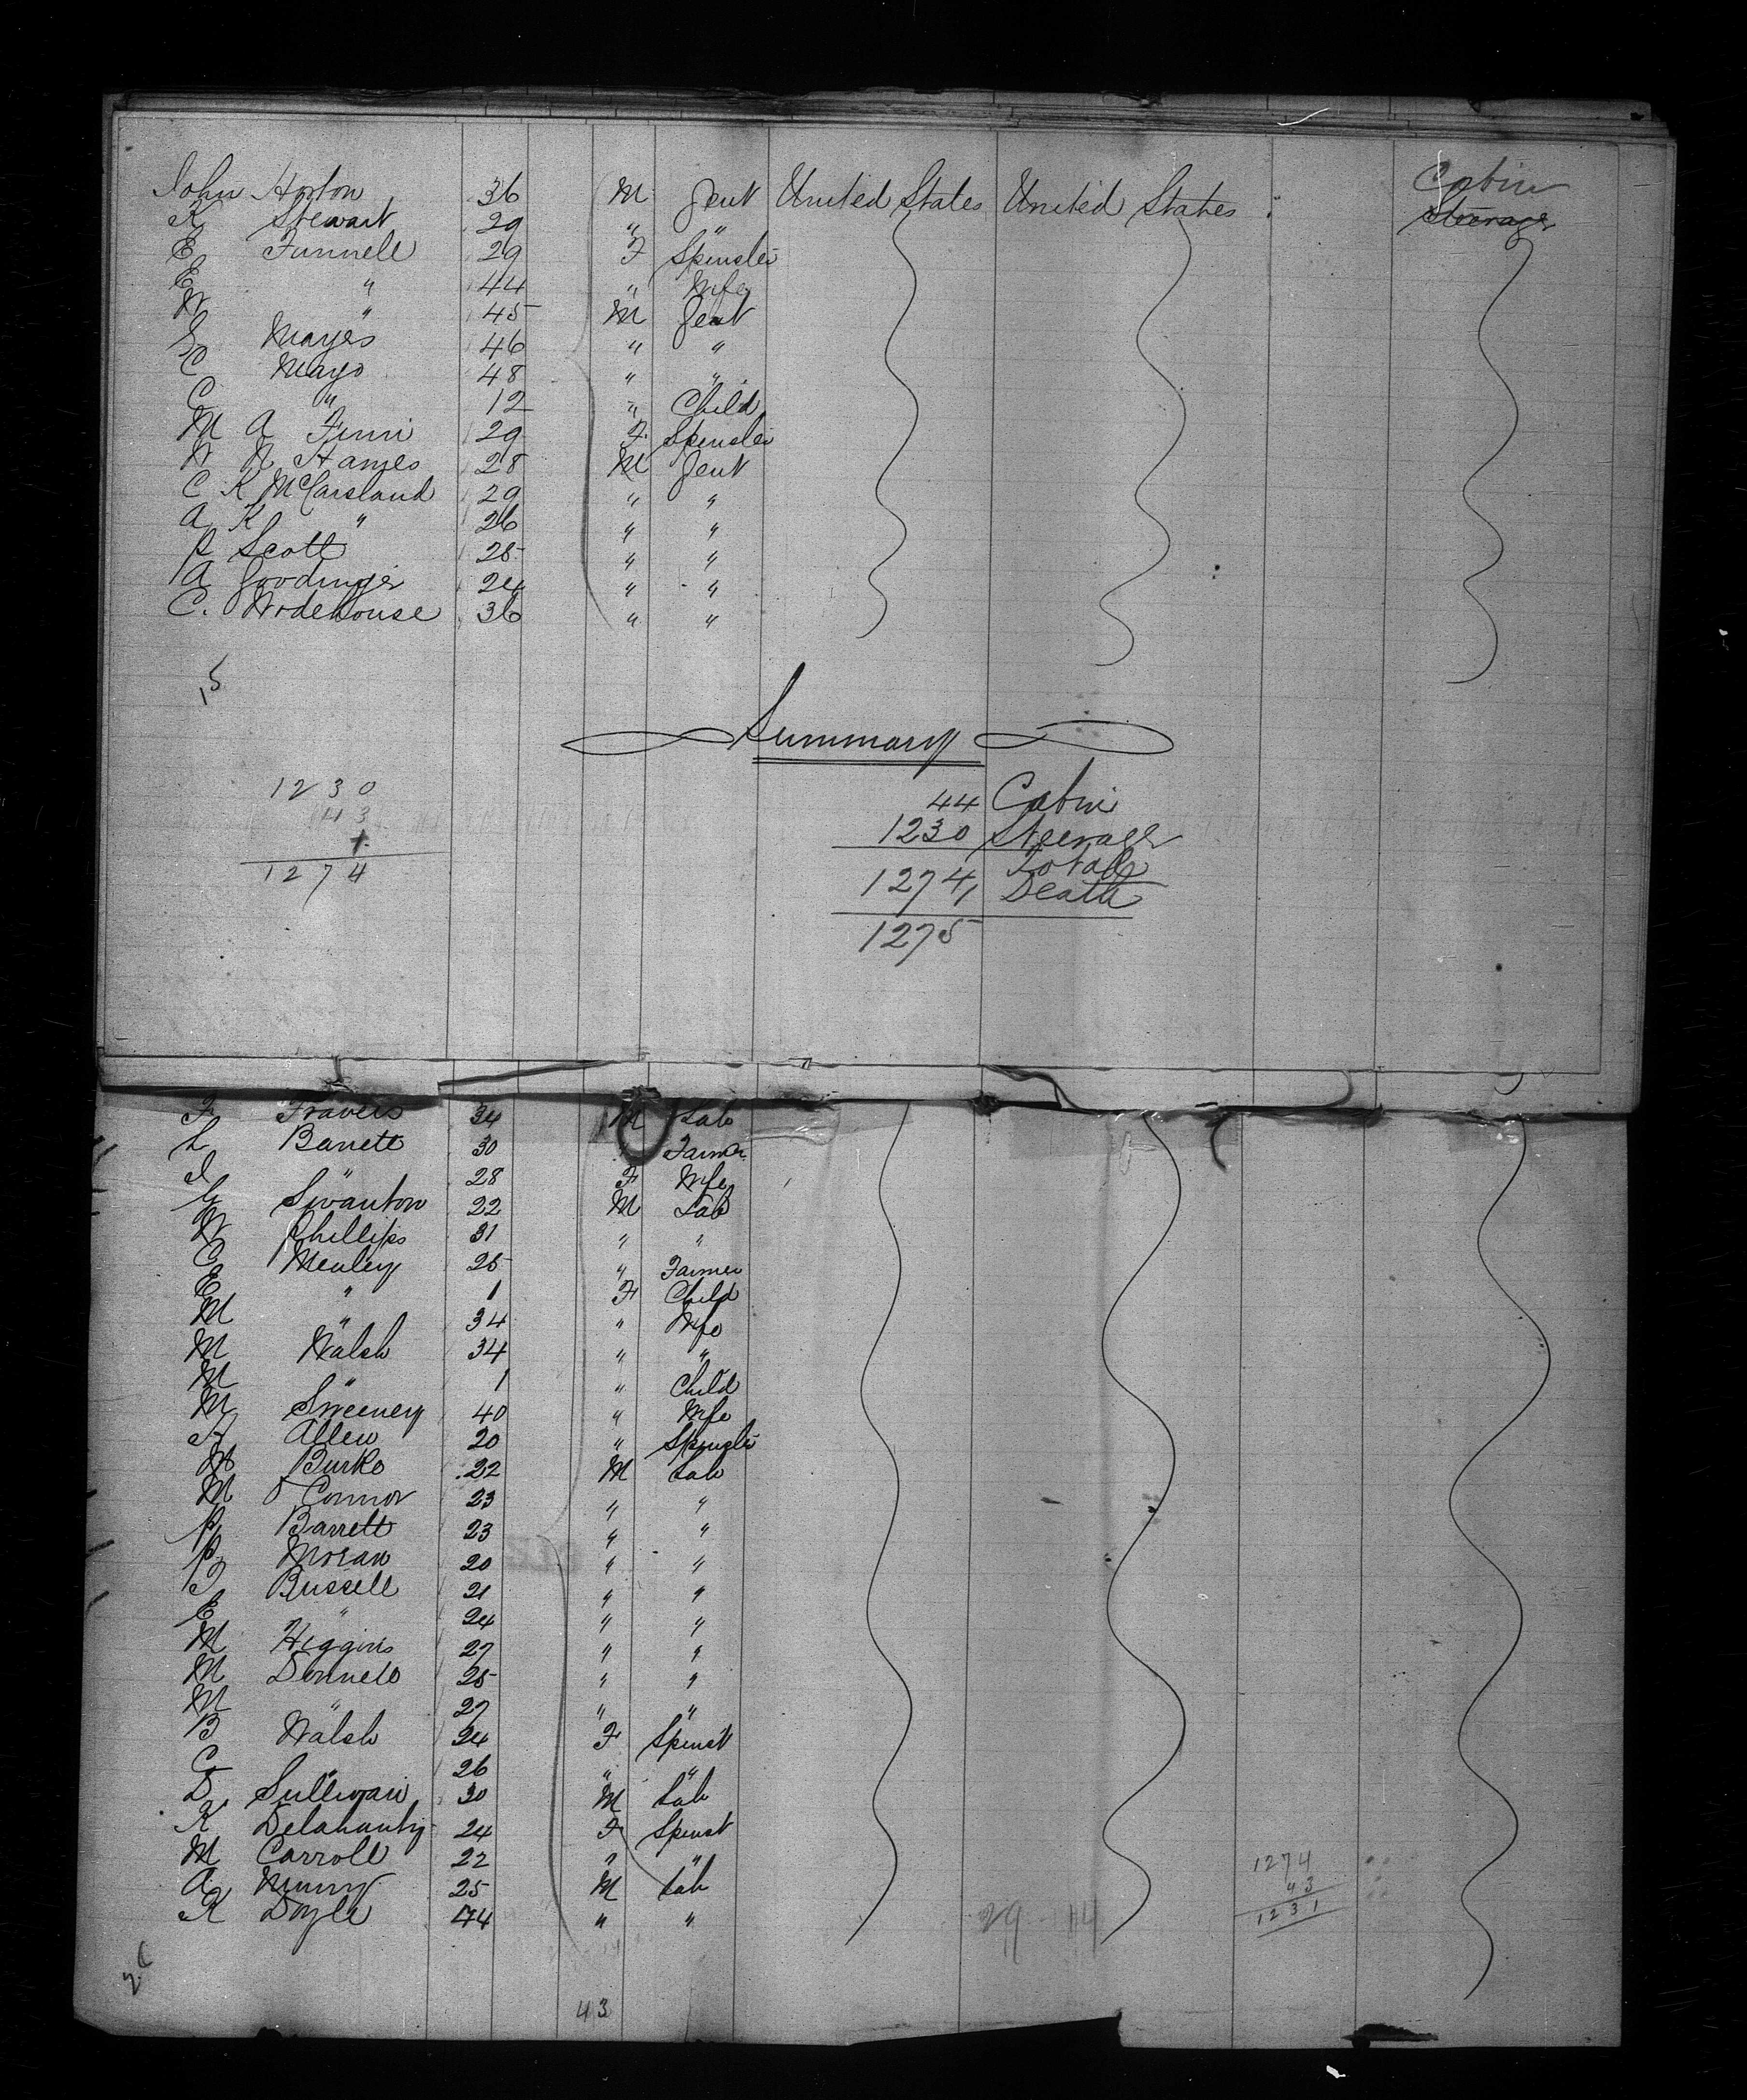 John Horton 36 M Gent United States United States Cabin
K Stewart 29 " " Steerage
E Funnell 29 F Spinster
E " 44 " Wife
W " 45 M Gent
G Mayes 46 " "
C Mayo 48 " "
C " 12 " Child
M A Finni 29 F Spinster
W N Hames 28 M Gent
C K McCarsland 29 " "
A K " 26 " "
P Scott 25 " "
A Goodinger 24 " "
C. Wodehouse 36 " "
15
Summary
1230
43
1
1274
44 Cabin
1230 Steerage
1274 Total
1 Death
1275
F Travers 34 M Lab
L Barrett 30 " Farmer
I " 28 F Wife
G Swanton 22 M Lab
W Phillips 31 " "
C Menley 25 " Farmer
E " 1 F Child
M " 34 " Wife
M Walsh 34 " "
M " 1 " Child
M Sweeney 40 " Wife
A Allen 20 " Spinster
M Burke 22 M Lab
M O Connor 23 " "
P Barrett 23 " "
P Moran 20 " "
J Russell 21 " "
E " 24 " "
M Higgins 27 " "
M Donnelo 25 " "
M " 27 " "
B Walsh 24 F Spinst
C " 26 " "
D Sullivan 30 M Lab
K Delahanty 24 F Spinst
M Carroll 22 " "
A Munny 25 M Lab
K Doyle 44 " "
1274
43
1231
43